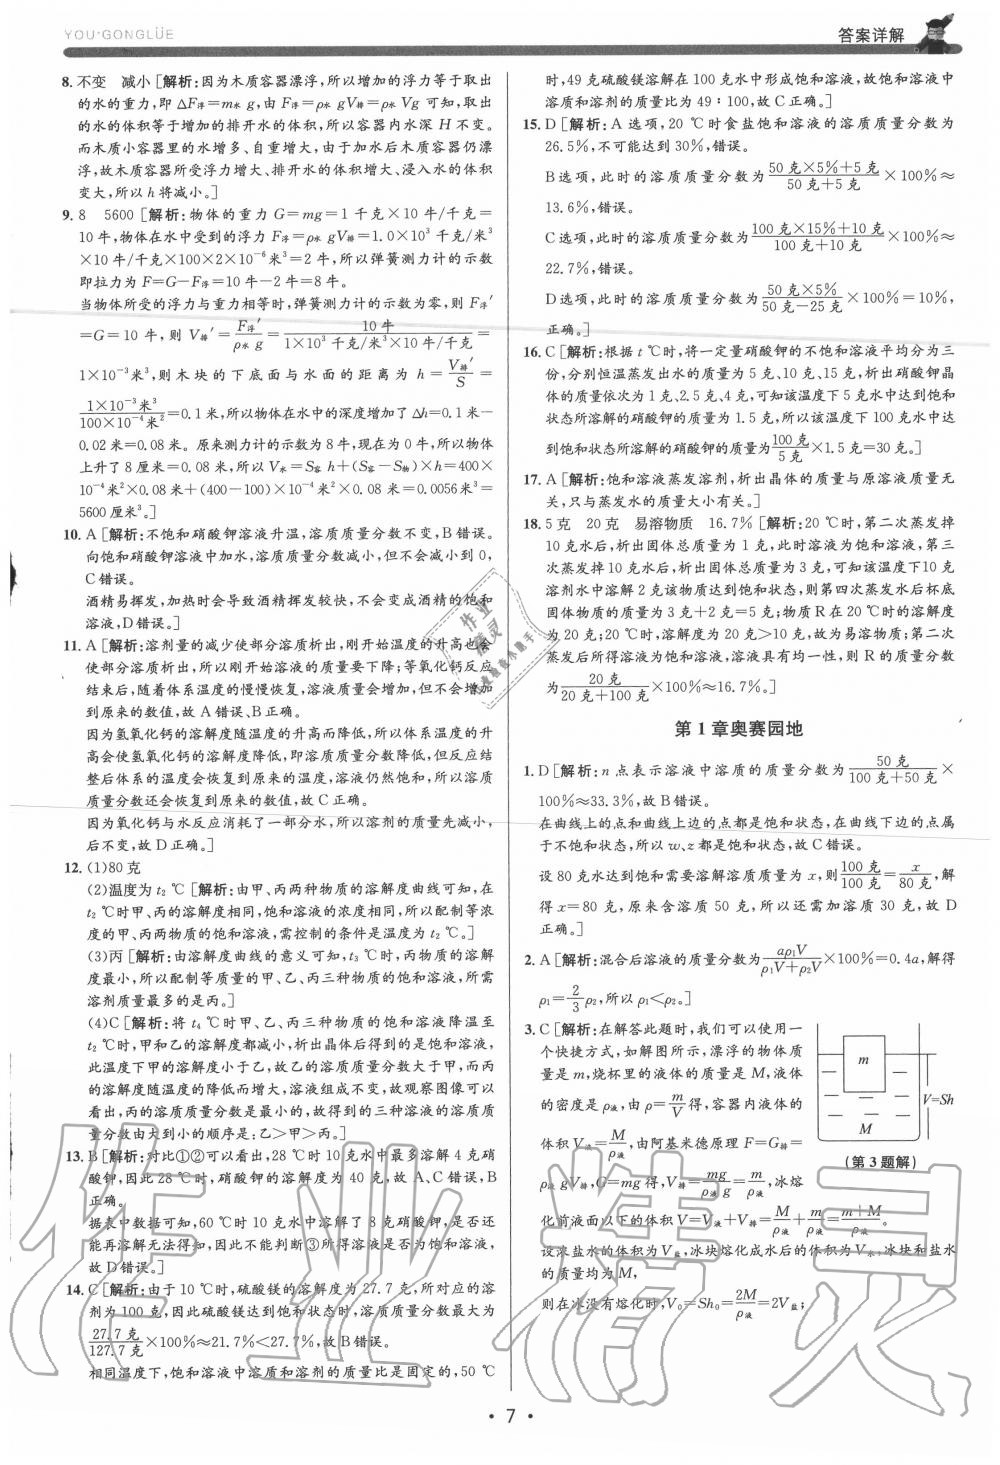 YOU·GONGLÜE
答案详解
8. 不变　减小[解析:因为木质容器漂浮,所以增加的浮力等于取出
的水的重力,即 ΔF浮=m水 g,由 F浮=ρ水 gV排=ρ水 Vg 可知,取出
的水的体积等于增加的排开水的体积,所以容器内水深 H 不变。
而木质小容器里的水增多、自重增大,由于加水后木质容器仍漂
浮,故木质容器所受浮力增大、排开水的体积增大、浸入水的体积
变大,所以 h 将减小。]
9. 8　5600[解析:物体的重力 G=mg=1 千克×10 牛/千克=
10牛,物体在水中受到的浮力 F浮=ρ水 gV排=1.0×10³ 千克/米³
×10 牛/千克×100×2×10⁻⁶米³=2 牛,所以弹簧测力计的示数
即拉力为 F=G−F浮=10牛−2牛=8牛。
当物体所受的浮力与重力相等时,弹簧测力计的示数为零,则 F浮′
=G=10 牛,则 V排′=F浮′/ρ水 g=10 牛/1×10³ 千克/米³×10 牛/千克=
1×10⁻³米³,则木块的下底面与水面的距离为 h=V排′/S=
1×10⁻³米³/100×10⁻⁴米²=0.1 米,所以物体在水中的深度增加了 Δh=0.1 米−
0.02 米=0.08 米。原来测力计的示数为 8 牛,现在为 0 牛,所以物体
上升了 8 厘米=0.08 米,所以 V水=S容 h+(S容−S物)×h=400×
10⁻⁴米²×0.08 米+(400−100)×10⁻⁴米²×0.08 米=0.0056米³=
5600 厘米³。]
10. A[解析:不饱和硝酸钾溶液升温,溶质质量分数不变,B错误。
向饱和硝酸钾溶液中加水,溶质质量分数减小,但不会减小到 0,
C错误。
酒精易挥发,加热时会导致酒精挥发较快,不会变成酒精的饱和
溶液,D错误。]
11. A[解析:溶剂量的减少使部分溶质析出,刚开始温度的升高也会
使部分溶质析出,所以刚开始溶液的质量要下降;等氧化钙反应
结束后,随着体系温度的慢慢恢复,溶液质量会增加,但不会增加
到原来的数值,故 A 错误、B正确。
因为氢氧化钙的溶解度随温度的升高而降低,所以体系温度的升
高会使氢氧化钙的溶解度降低,即溶质质量分数降低,但反应结
整后体系的温度会恢复到原来的温度,溶液仍然饱和,所以溶质
质量分数还会恢复到原来的数值,故 C正确。
因为氧化钙与水反应消耗了一部分水,所以溶剂的质量先减小,
后不变,故 D正确。]
12. (1)80克
(2)温度为 t₂ ℃[解析:由甲、丙两种物质的溶解度曲线可知,在
t₂ ℃时甲、丙的溶解度相同,饱和溶液的浓度相同,所以配制等浓
度的甲、丙两物质的饱和溶液,需控制的条件是温度为 t₂ ℃。]
(3)丙[解析:由溶解度曲线的意义可知,t₃ ℃时,丙物质的溶解
度最小,所以配制等质量的甲、乙、丙三种物质的饱和溶液,所需
溶剂质量最多的是丙。]
(4)C[解析:将 t₄ ℃时甲、乙、丙三种物质的饱和溶液降温至
t₂ ℃时,甲和乙的溶解度都减小,析出晶体后得到的是饱和溶液,
此温度下甲的溶解度小于乙,故乙的溶质质量分数大于甲,而丙
的溶解度随温度的降低而增大,溶液组成不变,故观察图像可以
看出,丙的溶质质量分数是最小的,故得到的三种溶液的溶质质
量分数由大到小的顺序是:乙>甲>丙。]
13. B[解析:对比①②可以看出,28 ℃时10克水中最多溶解4克硝
酸钾,因此 28 ℃时,硝酸钾的溶解度为 40 克,故 A、C错误,B
正确。
据表中数据可知,60 ℃时 10 克水中溶解了 8 克硝酸钾,是否还
能再溶解无法得知,因此不能判断③所得溶液是否为饱和溶液,
故D错误。]
14. C[解析:由于 10 ℃时,硫酸镁的溶解度为 27.7 克,所对应的溶
剂为 100 克,因此硫酸镁达到饱和状态时,溶质质量分数最大为
27.7 克/127.7 克×100%≈21.7%<27.7%,故 B错误。
相同温度下,饱和溶液中溶质和溶剂的质量比是固定的,50 ℃
时,49 克硫酸镁溶解在 100 克水中形成饱和溶液,故饱和溶液中
溶质和溶剂的质量比为 49∶100,故 C正确。]
15. D[解析:A 选项,20 ℃时食盐饱和溶液的溶质质量分数为
26.5%,不可能达到30%,错误。
B选项,此时的溶质质量分数为50 克×5%+5 克/50 克+5 克×100%≈
13.6%,错误。
C选项,此时的溶质质量分数为100 克×15%+10 克/100 克+10 克×100%≈
22.7%,错误。
D选项,此时的溶质质量分数为50 克×5%/50 克−25 克×100%=10%,
正确。]
16. C[解析:根据 t ℃时,将一定量硝酸钾的不饱和溶液平均分为三
份,分别恒温蒸发出水的质量为 5 克、10 克、15 克,析出硝酸钾晶
体的质量依次为 1 克、2.5 克、4 克,可知该温度下 5 克水中达到饱和
状态所溶解的硝酸钾的质量为 1.5 克,所以该温度下 100 克水中达
到饱和状态所溶解的硝酸钾的质量为100 克/5 克×1.5 克=30 克。]
17. A[解析:饱和溶液蒸发溶剂,析出晶体的质量与原溶液质量无
关,只与蒸发水的质量大小有关。]
18. 5克　20克　易溶物质　16.7%[解析:20 ℃时,第二次蒸发掉
10 克水后,析出固体总质量为 1 克,此时溶液为饱和溶液,第三
次蒸发掉 10 克水后,析出固体总质量为 3 克,可知该温度下10 克
溶剂水中溶解 2 克该物质达到饱和状态,则第四次蒸发水后杯底
固体物质的质量为 3 克+2 克=5 克;物质 R在20 ℃时的溶解度
为 20 克;20 ℃时,溶解度为 20 克>10 克,故为易溶物质;第二次
蒸发后所得溶液为饱和溶液,溶液具有均一性,则 R 的质量分数
为20 克/20 克+100 克×100%≈16.7%。]
第 1 章奥赛园地
1. D[解析:n 点表示溶液中溶质的质量分数为50 克/100 克+50 克×
100%≈33.3%,故 B错误。
在曲线上的点和曲线上边的点都是饱和状态,在曲线下边的点属
于不饱和状态,所以 w、z 都是饱和状态,故 C错误。
设 80 克水达到饱和需要溶解溶质质量为 x,则100 克/100 克=x/80 克,解
得 x=80 克,原来含溶质 50 克,所以还需加溶质 30 克,故 D
正确。]
2. A[解析:混合后溶液的质量分数为aρ₁V/ρ₁V+ρ₂V×100%=0.4a,解得
ρ₁=2/3ρ₂,所以 ρ₁<ρ₂。]
3. C[解析:在解答此题时,我们可以使用一
个快捷方式,如解图所示,漂浮的物体质
量是 m,烧杯里的液体的质量是 M,液体
的密度是 ρ液,由 ρ=m/V得,容器内液体的
体积 V液=M/ρ液,由阿基米德原理 F=G排=
ρ液 gV排,G=mg得,V排=mg/ρ液 g=m/ρ液,冰熔
化前液面以下的体积 V=V液+V排=M/ρ液+m/ρ液=m+M/ρ液。
设浓盐水的体积为 V盐,冰块熔化成水后的体积为 V水,冰块和盐水
的质量均为 M,
则在冰没有熔化时,V₀=Sh₀=2M/ρ液=2V盐;
m
V=Sh
M
(第 3 题解)
· 7 ·
作业精灵